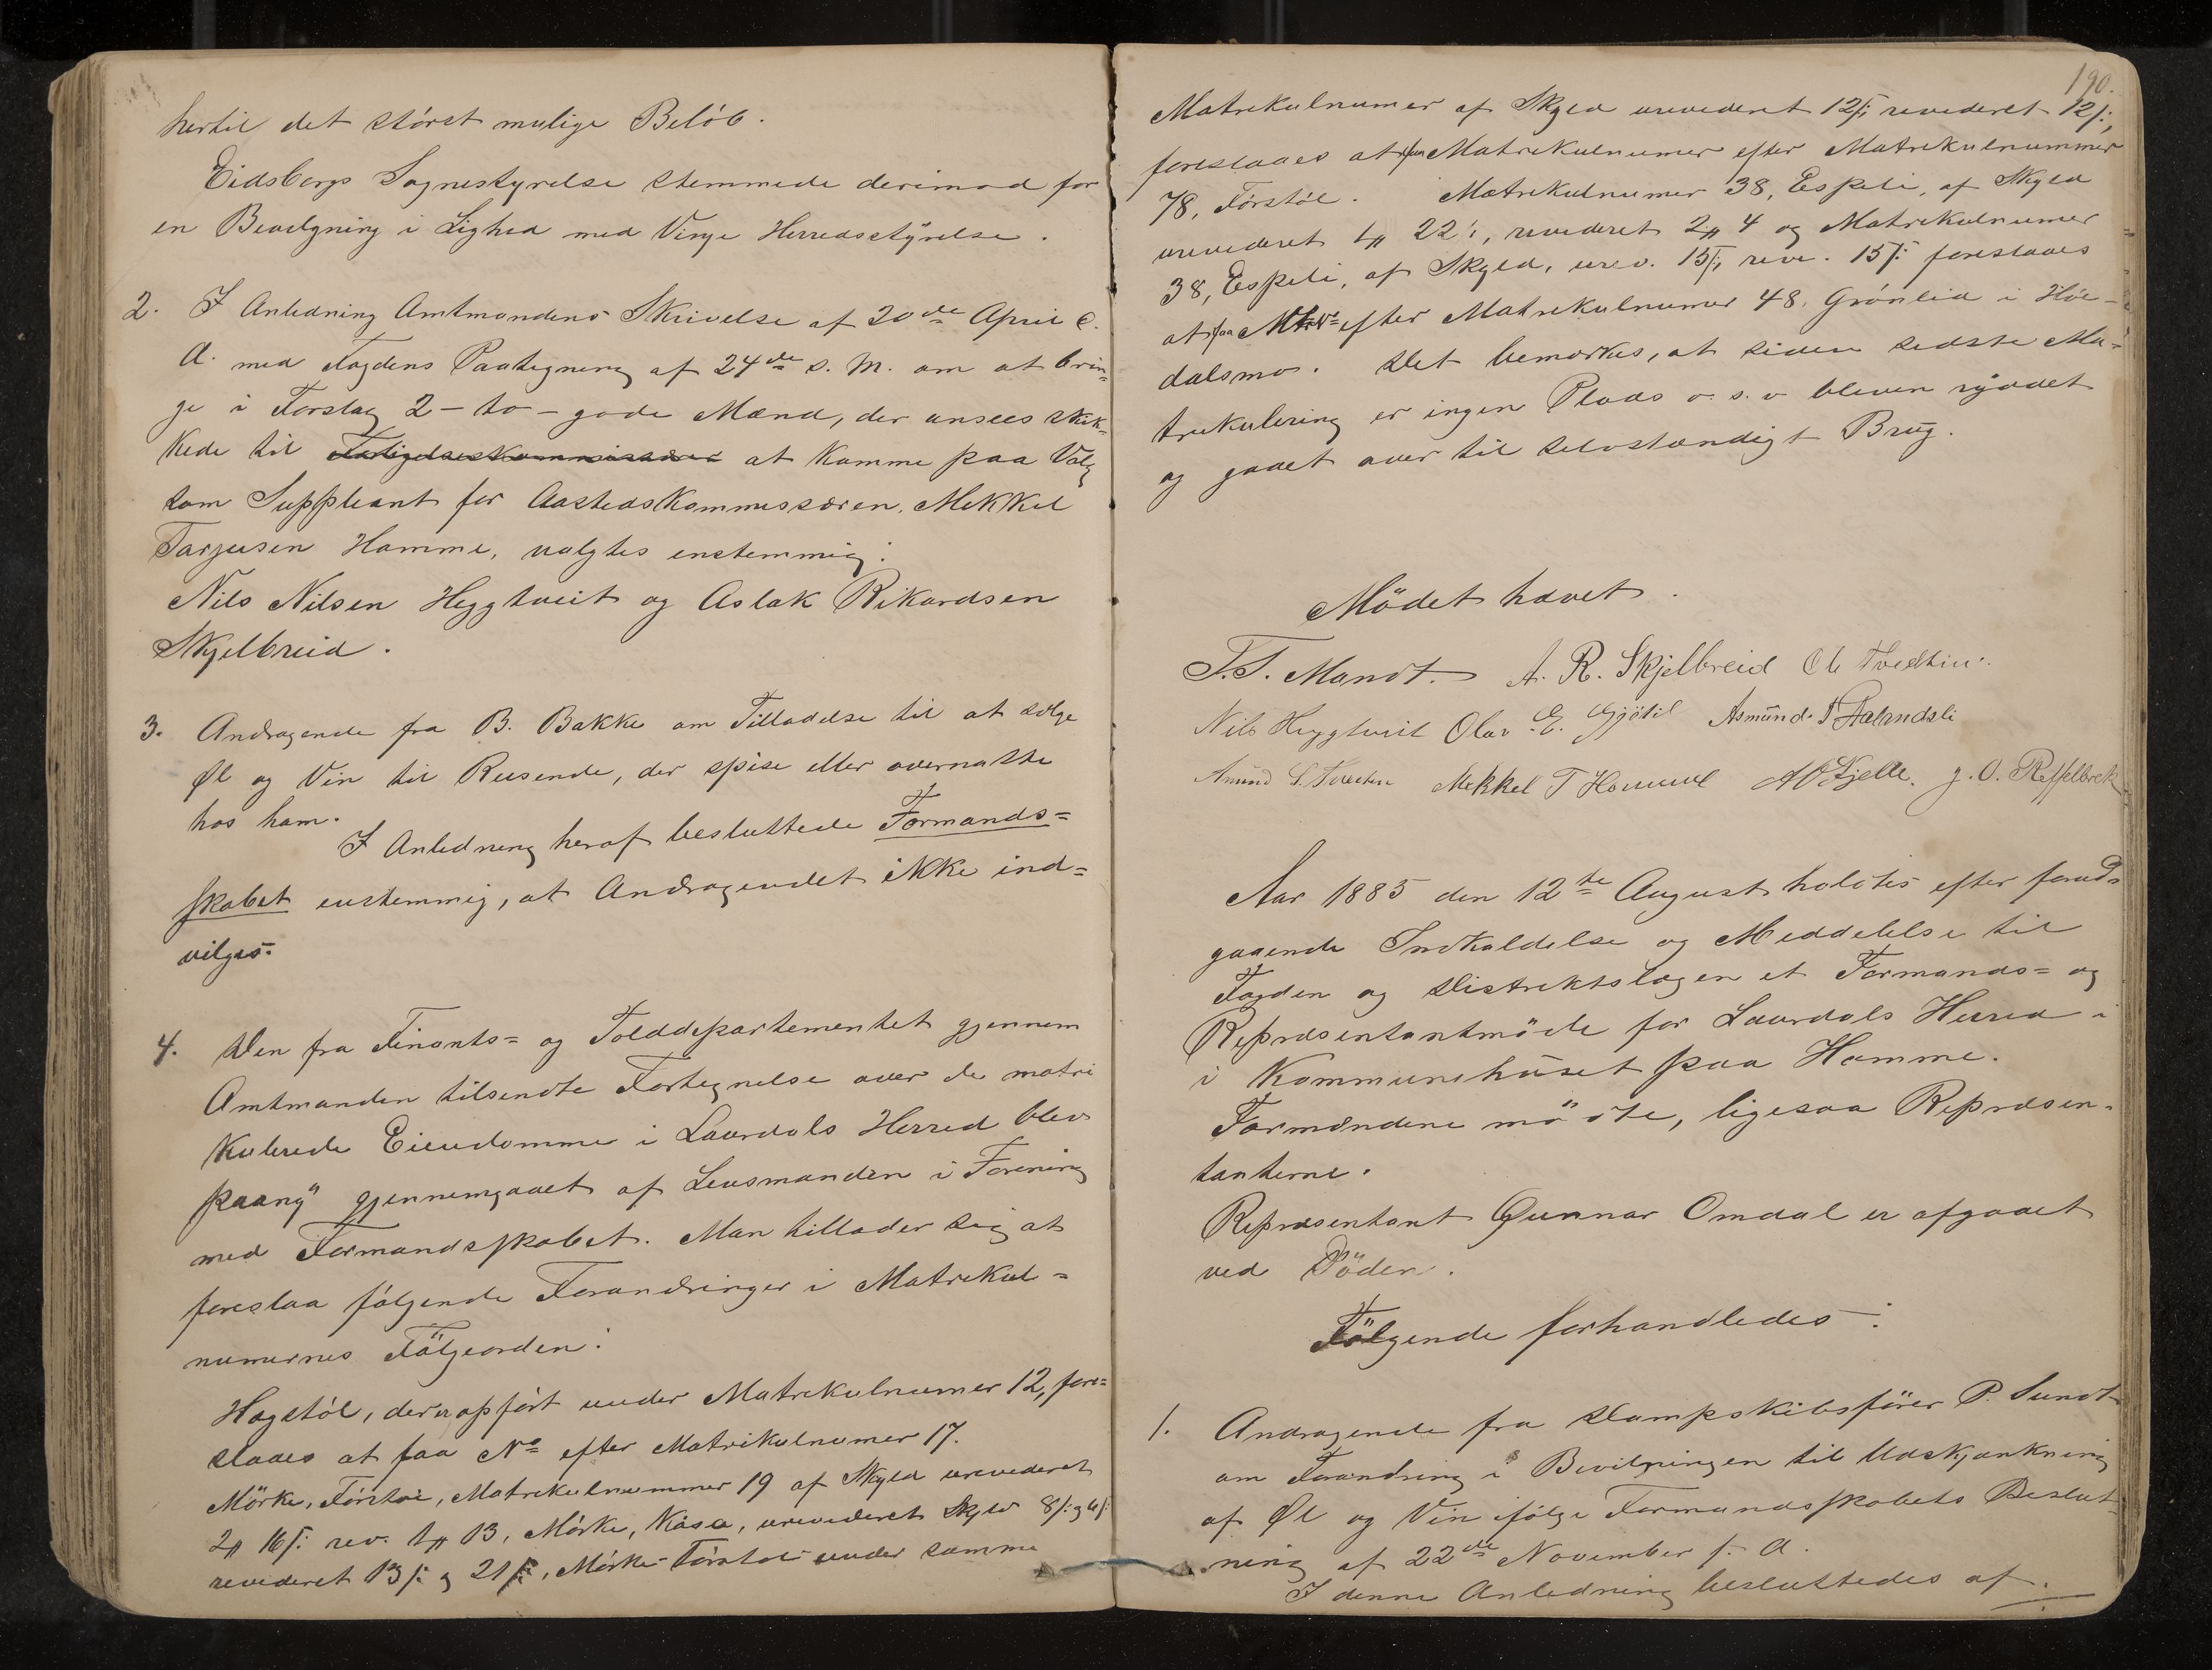 hertil det störst mulige Belöb.
Eidsborgs Sognestyrelse stemmede derimod for
en Bevilgning i Lighed med Vinje Herredsstyrelse.
2. I Anledning Amtmandens Skrivelse af 20de April d.
A. med Fogdens Paategning af 24de s. M. om at brin-
ge i Forslag 2 - to - gode Mænd, der ansees skik-
kede til Forligelseskommissærer at komme paa Valg
som Suppleant for Aastedskommissæren, Mikkel
Tarjeisen Homme, valgtes enstemmig:
Nils Nilsen Heggtveit og Aslak Rikardsen
Skjelbreid.
3. Andragende fra B. Bakke om Tilladelse til at sælge
Øl og Vin til Reisende, der spise eller overnatte
hos ham.
I Anledning heraf besluttede Formands=
skabet enstemmig, at Andragendet ikke ind=
vilges.
4. Den fra Finants= og Tolddepartementet gjennem
Amtmanden tilsendte Fortegnelse over de matri
kulerede Eiendomme i Laurdals Herred blev
paany gjennemgaaet af Lensmanden i Forening
med Formandsskabet. Man tillader sig at
foreslaa følgende Forandringer i Matrikul=
numernes Følgeorden:
Hogstöl, der er opfört under Matrikulnumer 12, fore=
slaaes at faa No efter Matrikulnumer 17.
Mörke, Förstöl, Matrikulnummer 19 af Skyld urevideret
2 16 rev. 1 13, Mörke, Kåsa, urevideret Skyld 8 og 6
revideret 13 og 21, Mörke Förstöl under samme
190.
Matrikulnumer af Skyld urevideret 12, revideret 12,
foreslaaes at faa Matrikulnumer efter Matrikulnummer
78, Förstöl. Matrikulnumer 38, Espeli, af Skyld
urevideret 1 22, revideret 2 4 og Matrikulnumer
38, Espeli, af Skyld, urev. 15, reve. 15 foreslaaes
at faa efter Matrikulnumer 48, Grönlid i Höi-
dalsmo. Det bemærkes, at siden sidste Ma-
trikulering er ingen Plads o. s. v bleven ryddet
og gaaet over til selvstændigt Brug.
Mödet hævet.
T. T. Mandt. A. R. Skjelbreid
Nils Heggtveit Olav E. Gjötil Asmund
Mikkel T Homme
Aar 1885 den 12te August holdtes efter forud=
gaaende Indkaldelse og Meddelelse til
Fogden og Distriktslægen et Formands= og
Repræsentantmöde for Laurdals Herred i
i Kommunehuset paa Homme.
Formændene mödte, ligesaa Repræsen-
tanterne.
Repræsentant Gunnar Omdal er afgaaet
ved Döden.
Fölgende forhandledes:
1. Andragende fra Dampskibsförer P. Sundt
om Forandring i Bevilgningen til Udskjænkning
af Øl og Vin ifölge Formandsskabets Beslut-
ning af 22de November f. A.
I denne Anledning besluttedes af